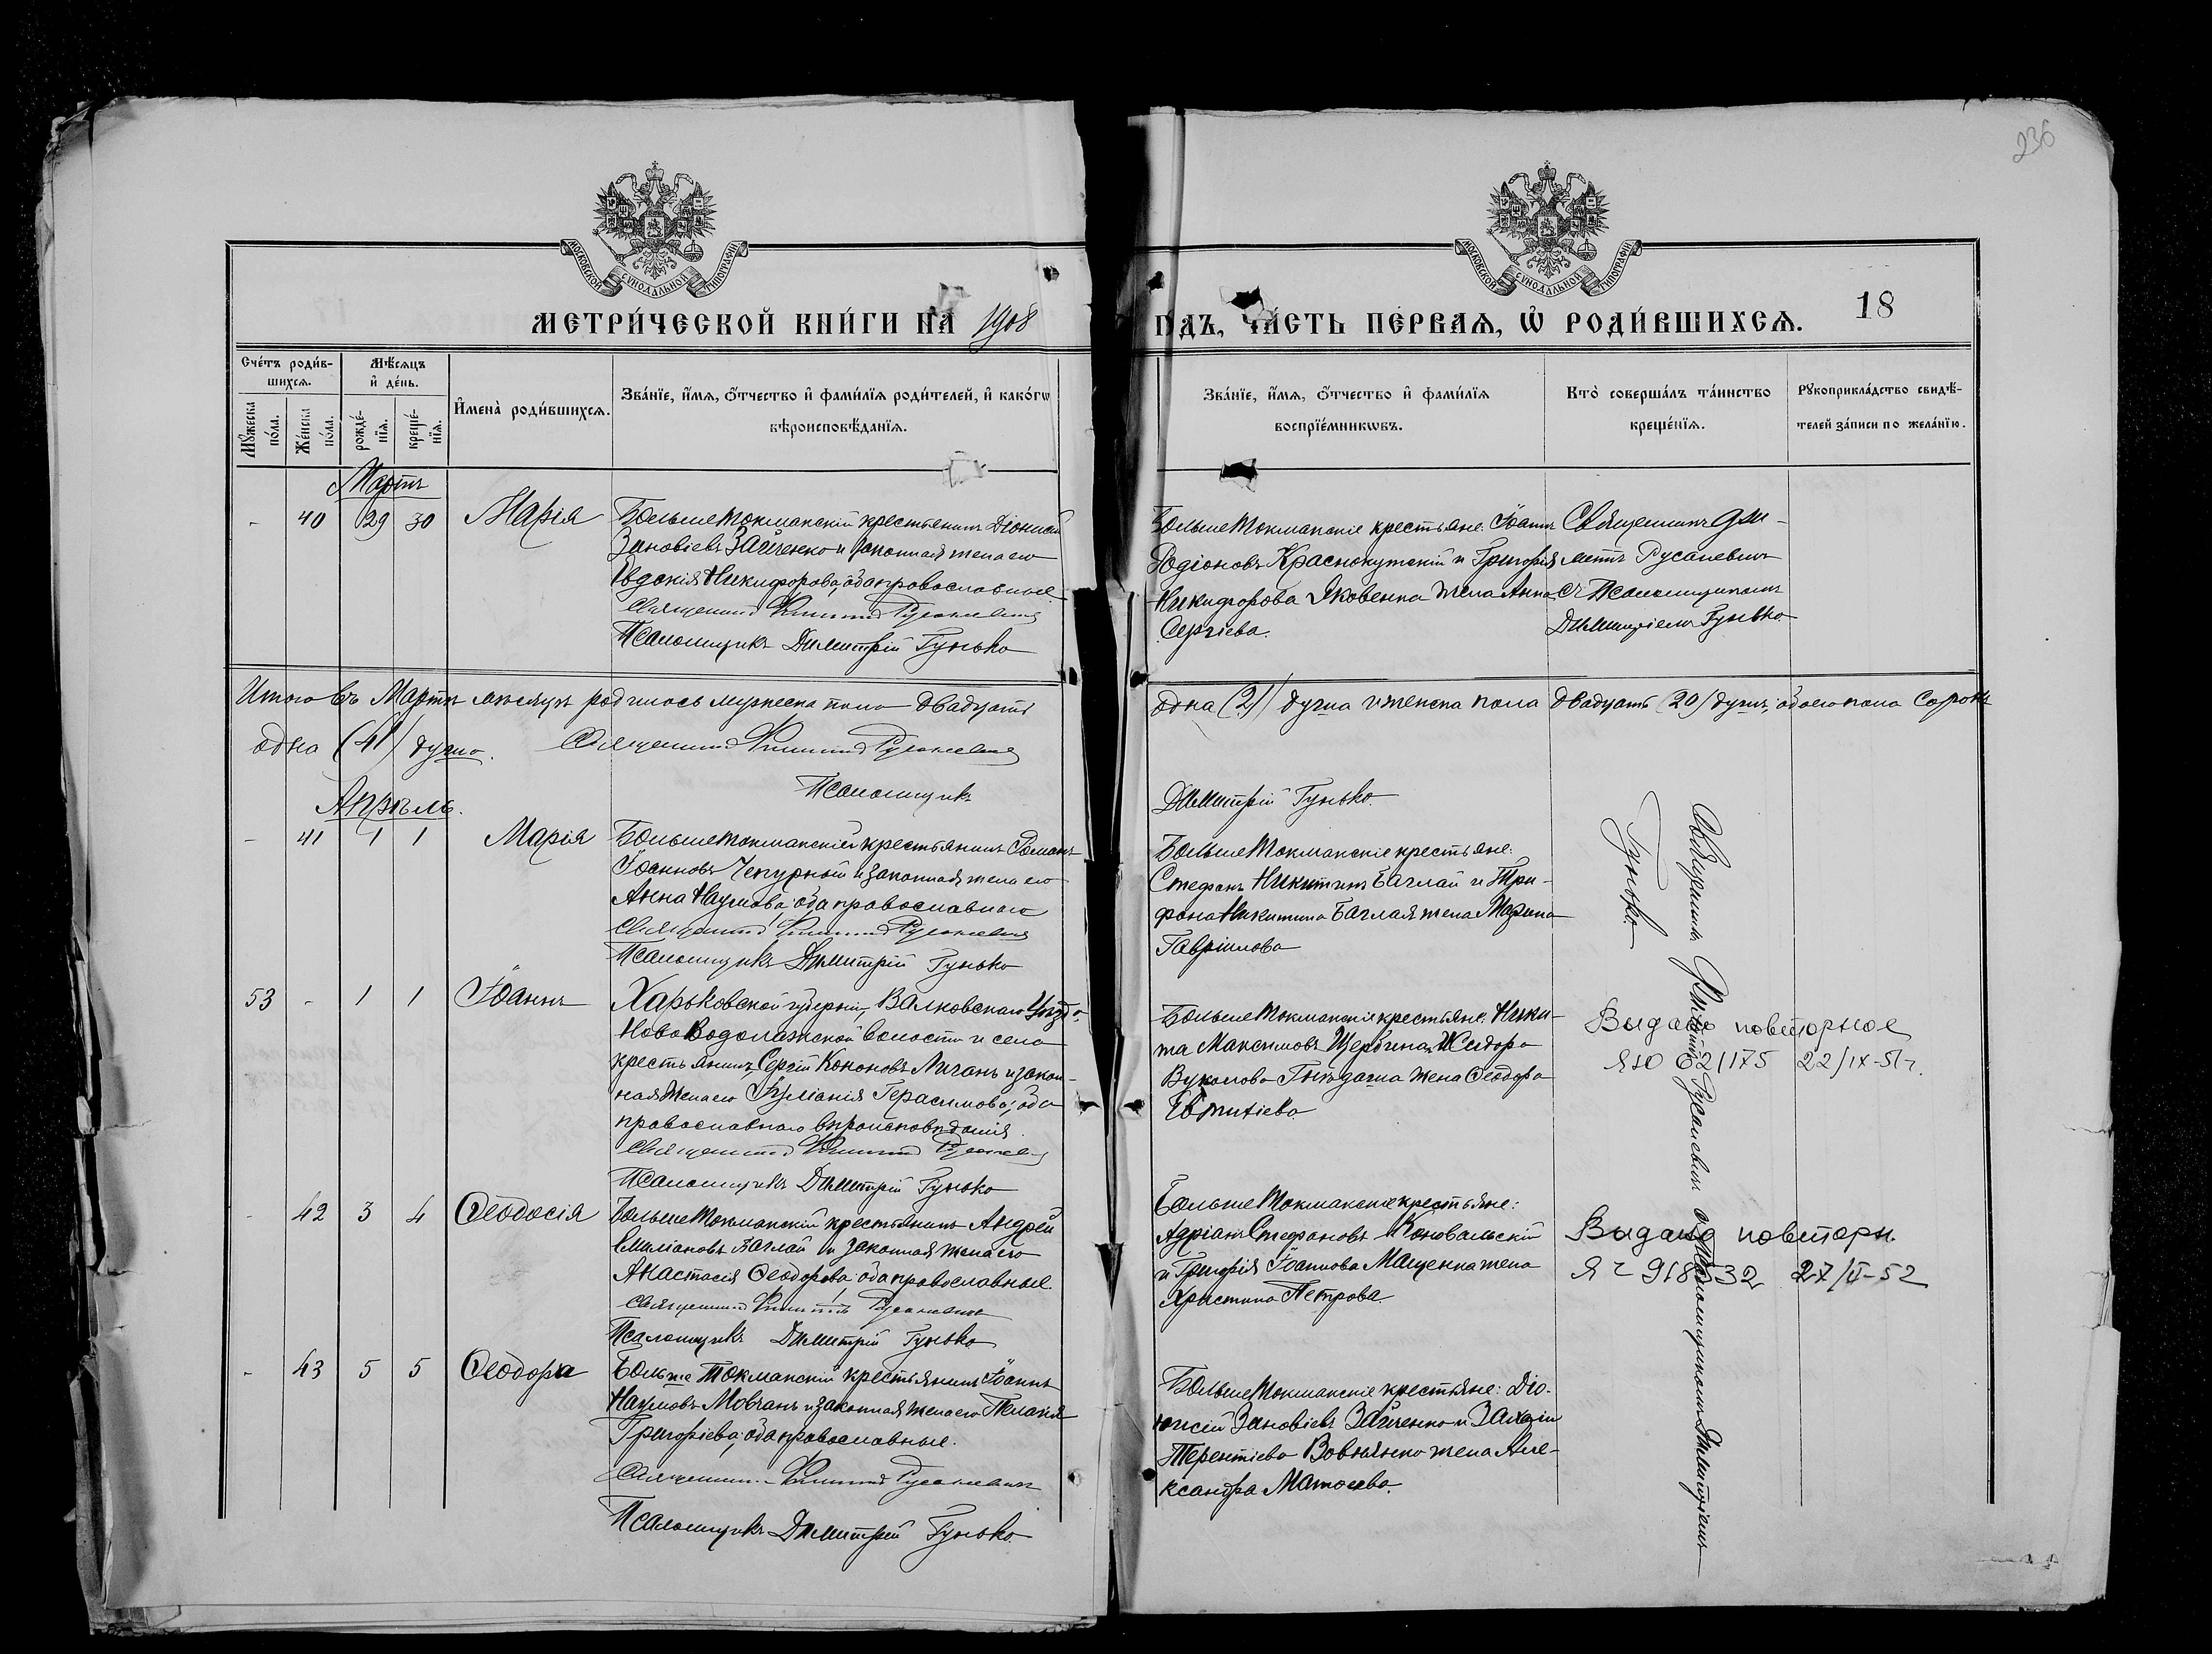 236
МОСКОВСКОЙ СѴНОДАЛЬНОЙ ТИПОГРАФІИ
МОСКОВСКОЙ СѴНОДАЛЬНОЙ ТИПОГРАФІИ
МЕТРИ́ЧЕСКОЙ КНИ́ГИ НА 1908
ГОДЪ, ЧА́СТЬ ПЕ́РВАѦ, Ѡ҆ РОДИ́ВШИХСѦ. 18
Сче́тъ роди́в-
шихсѧ.
Мѣ́сѧцъ
и҆ де́нь.
Мꙋ́жеска по́ла.
Же́нска по́ла.
рожде́-
нїѧ.
креще́-
нїѧ.
И҆мена̀ роди́вшихсѧ.
Зва́нїе, и҆́мѧ, о҆́тчество и҆ фами́лїѧ роди́телей, и҆ како́гѡ
вѣроисповѣ́данїѧ.
Зва́нїе, и҆́мѧ, о҆́тчество и҆ фами́лїѧ
воспрїе́мникѡвъ.
Кто̀ соверша́лъ та́инство
креще́нїѧ.
Рꙋкоприкла́дство свидѣ́-
телей за́писи по жела́нїю.
Мартъ
- 40 29 30 Марія
Больше Токмакскій крестьянинъ Діонисій
Зиновіевъ Зайченко и законная жена его
Евдокія Никифорова, оба православные
Священникъ Димитрій Русаневичъ
Псаломщикъ Димитрій Гунько
Больше Токмакскіе крестьяне: Іоаннъ
Родіоновъ Краснокутскій и Григорія
Никифорова Яковенка жена Анна
Сергіева.
Священникъ Дми-
митрій Русаневичъ
съ Псаломщикомъ
Димитріемъ Гунько
Итого въ Мартѣ мѣсяцѣ родилось мужеска пола двадцать
одна (21) душа и женска пола двадцать (20) душъ, обоего пола сорокъ
одна (41) душа. Священникъ Димитрій Русаневичъ
Псаломщикъ
Димитрій Гунько.
Апрѣль.
- 41 1 1 Марія
Больше Токмакскій крестьянинъ Романъ
Іоанновъ Чепурной и законная жена его
Анна Наумова, оба православнаго
Священникъ Димитрій Русаневичъ
Псаломщикъ Димитрій Гунько
Больше Токмакскіе крестьяне:
Стефанъ Никитинъ Баглай и Три-
фона Никитина Баглая жена Марина
Гавріилова
53 - 1 1 Іоаннъ
Харьковской губерніи, Валковскаго Уѣзда,
Ново Водолажской волости и села
крестьянинъ Сергій Кононовъ Личанъ и закон-
ная жена его Іуліанія Герасимова; оба
православнаго вѣроисповѣданія.
Священникъ Димитрій Русаневичъ
Псаломщикъ Димитрій Гунько
Больше Токмакскіе крестьяне: Ники-
та Максимовъ Щербина и Исидора
Вуколова жена Ѳеодора
Евтихіева
Выдано повторное
ЯЮ 621175 22/IX-51г.
- 42 3 4 Ѳеодосія
Больше Токмакскій крестьянинъ Андрей
Емиліановъ Баглай и законная жена его
Анастасія Ѳеодорова, оба православные
Священникъ Димитрій Русаневичъ
Псаломщикъ Димитрій Гунько
Больше Токмакскіе крестьяне:
Адріанъ Стефановъ Коновальскій
и Григорія Іоаннова Маценка жена
Христина Петрова.
Выдано повторн.
ЯЧ 918532 27/II-52
- 43 5 5 Ѳеодора
Больше Токмакскій крестьянинъ Іоаннъ
Наумовъ Мовчанъ и законная жена его Пелагія
Григоріева, оба православные.
Священникъ Димитрій Русаневичъ
Псаломщикъ Димитрій Гунько.
Больше Токмакскіе крестьяне: Діо-
нисій Зиновіевъ Зайченко и Захаріи
Терентіева Вовнянко жена Але-
ксандра Матѳеева.
Священникъ Димитрій Русаневичъ съ Псаломщикомъ Димитріемъ
Гунько.